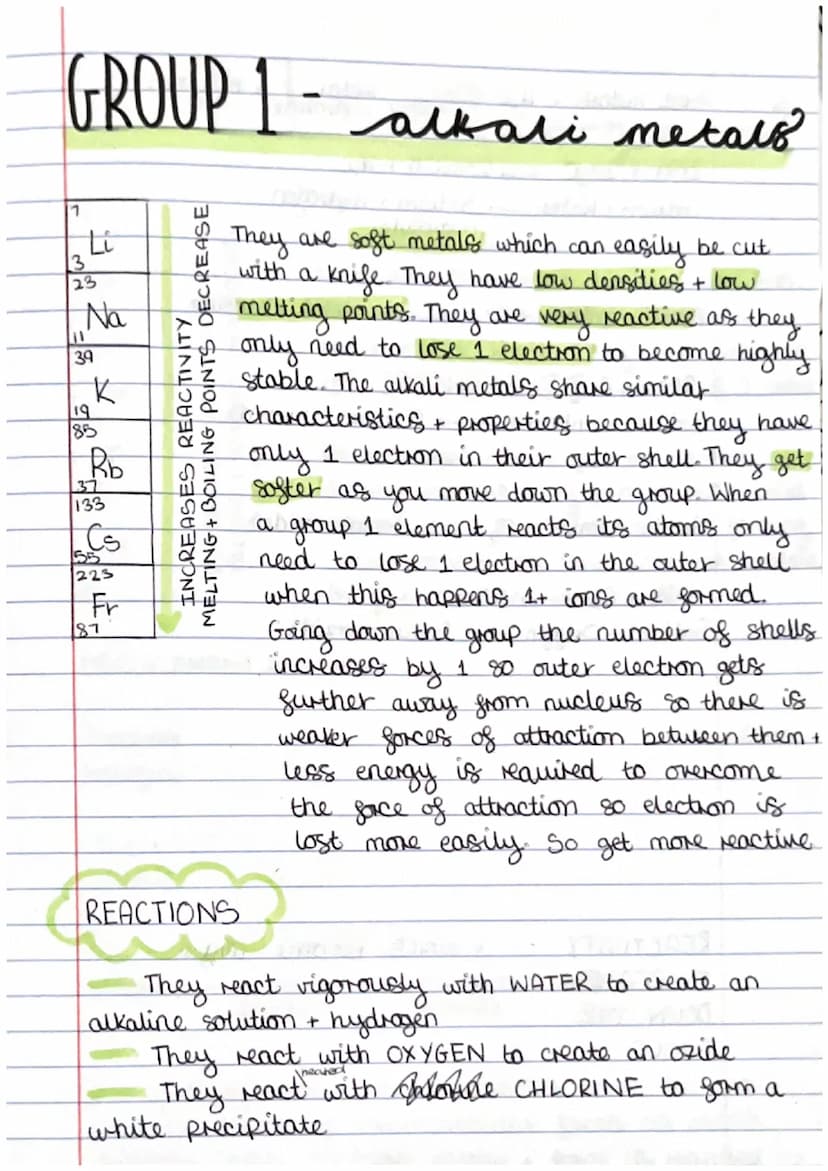 GROUP 1 - alkali metals
7
Li
3
23
Na
11
39
K
19
85
Rb
37
133
Cs
55
223
Fr
87
INCREASES REACTIVITY
MELTING + BOILING POINTS DECREASE
They are soft metals which can easily be cut
with a knife. They have low densities + low
melting points. They are very reactive as they
only need to lose 1 electron to become highly
stable. The alkali metals share similar
characteristics + properties because they have
only 1 electron in their outer shell. They get
softer as you move down the group. When
a group 1 element reacts its atoms only
need to lose 1 electron in the outer shell
when this happens 1+ ions are formed.
Going down the group the number of shells
increases by 1 so outer electron gets
further away from nucleus so there is
weaker forces of attraction between them +
less energy is required to overcome
the force of attraction so electron is
lost more easily. So get more reactive
REACTIONS
They react vigorously with WATER to create an
alkaline solution + hydrogen
They react with OXYGEN to create an oxide
They react heated with CHLORINE to form a
white precipitate